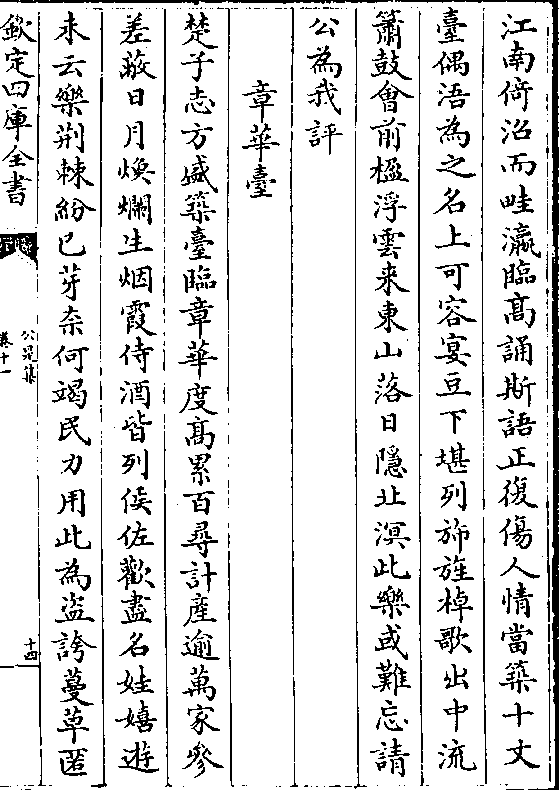 江南倚沼而畦瀛臨髙誦斯語正復傷人情當築十丈
臺偶浯為之名上可容宴豆下堪列斾旌棹歌出中流
簫鼓會前楹浮雲来東山落日隱北溟此樂或難忘請
公為我評
章華臺
楚子志方盛築臺臨章華度髙累百尋計産逾萬家參
差蔽日月煥爛生烟霞侍酒皆列侯佐歡盡名娃嬉遊
未云樂荆棘紛已芽奈何竭民力用此為盗誇蔓草匿
欽定四庫全書
公是集
卷十一
十四